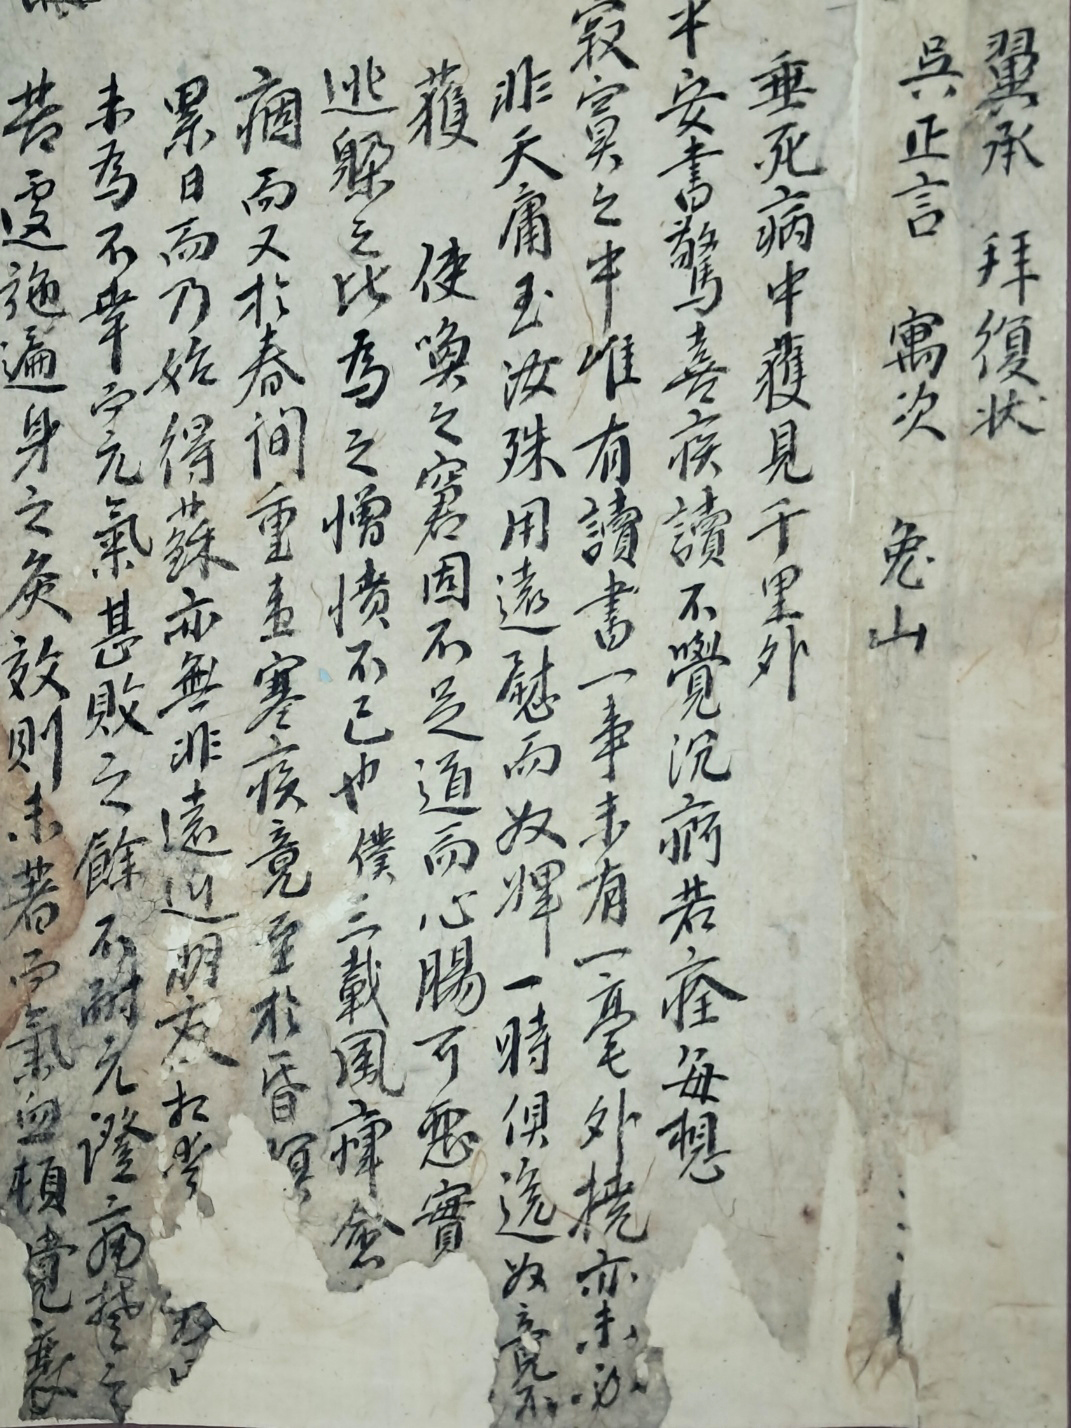 翼承 拜復狀
吳正言 寓次 兔山
垂死病中獲見千里外
平安書驚喜疾讀不覺沉痾若痊每想
寂寞之中惟有讀書一事未有一毫外撓亦未
非天庸玉汝殊用遠慰而奴婢一時俱逃奴
獲 使喚之窘固不足道而心腸可惡實
逃躲之比爲之憎憤不已也僕三載風痺
痼而又於春間重患寒疾竟至於昏冥
累日而乃始得蘇亦無非遠近朋友
未爲不幸而元氣甚敗之餘不耐元證痛楚之
苦遑施遍身之灸效則未著而氣血頓覺衰